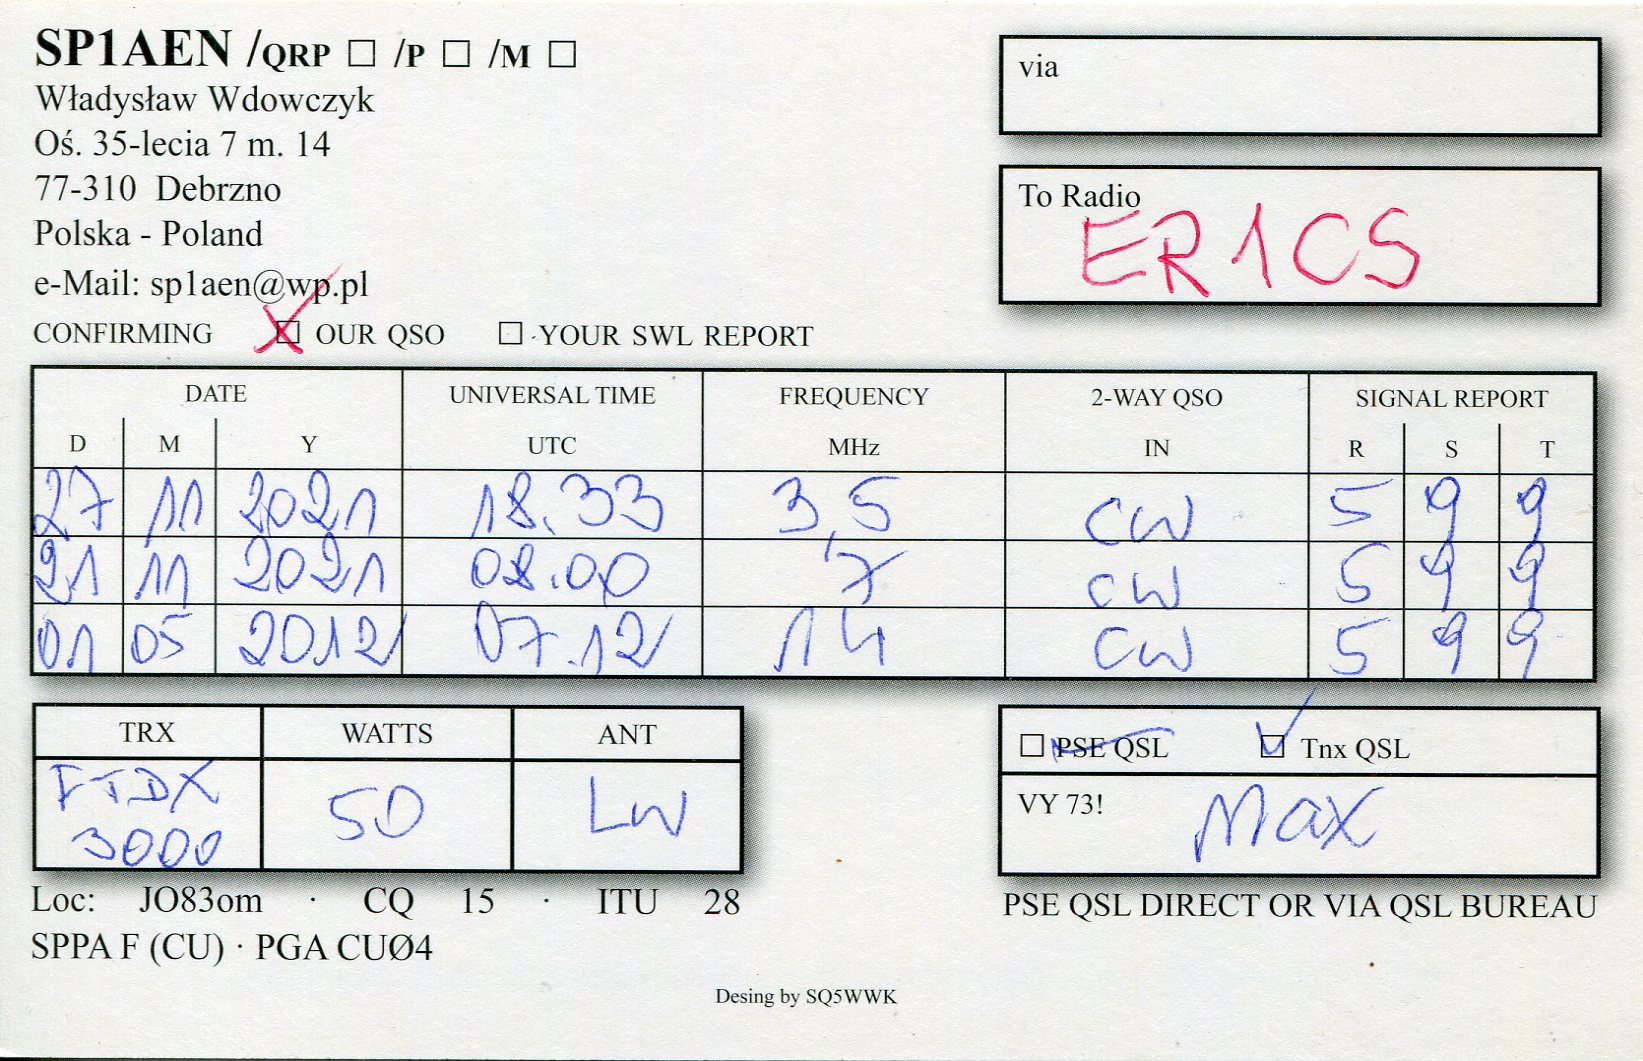 SP1AEN /QRP □ /P □ /M □
Władysław Wdowczyk
Oś. 35-lecia 7 m. 14
77-310 Debrzno
Polska - Poland
e-Mail: sp1aen@wp.pl
via
To Radio
ER1CS
CONFIRMING ☒ OUR QSO □ YOUR SWL REPORT
DATE UNIVERSAL TIME FREQUENCY 2-WAY QSO SIGNAL REPORT
D M Y UTC MHz IN R S T
27 11 2021 18.33 3,5 CW 5 9 9
21 11 2021 08.00 7 CW 5 9 9
01 05 2012 07.12 14 CW 5 9 9
TRX WATTS ANT
FTDX 3000 50 LW
□ PSE QSL ☑ Tnx QSL
VY 73! Max
Loc: JO83om · CQ 15 · ITU 28
SPPA F (CU) · PGA CUØ4
PSE QSL DIRECT OR VIA QSL BUREAU
Desing by SQ5WWK